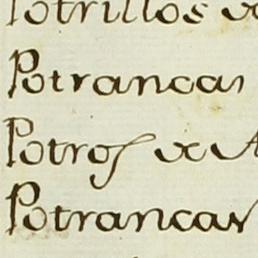 Potrillos de
Potrancas
Potros de A
Potrancas